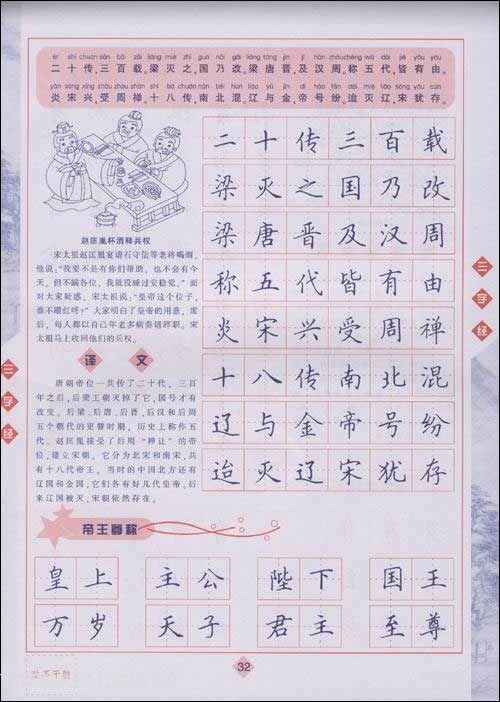 èr shí chuán sān bǎi zǎi liáng miè zhī guó nǎi gǎi liáng táng jìn jí hàn zhōu chēng wǔ dài jiē yǒu yóu
二十传,三百载。梁灭之,国乃改。梁唐晋,及汉周。称五代,皆有由。
yán sòng xīng shòu zhōu shàn shí bā chuán nán běi hùn liáo yǔ jīn dì hào fēn dài miè liáo sòng yóu cún
炎宋兴,受周禅。十八传,南北混。辽与金,帝号纷。迨灭辽,宋犹存。
赵匡胤杯酒释兵权
宋太祖赵匡胤宴请石守信等老将喝酒。
他说:“我要不是有你们帮助,也不会有今
天,但不瞒各位,我就没睡过安稳觉。”面
对大家疑惑,宋太祖说:“皇帝这个位子,
谁不眼红呀?”大家明白了皇帝的用意,席
后,每人都以自己年老多病奏请辞职。宋
太祖马上收回他们的兵权。
译 文
唐朝帝位一共传了二十代,三百
年之后,后梁王朝灭掉了它,国号才有
改变。后梁、后唐、后晋、后汉和后周
五个朝代的更替时期,历史上称作五
代。赵匡胤接受了后周“禅让”的帝
位,建立宋朝。它分为北宋和南宋,共
有十八代帝王。当时的中国北方还有
辽国和金国,它们各有好几代皇帝。后
来辽国被灭,宋朝依然存在。
二十传三百载
梁灭之国乃改
梁唐晋及汉周
称五代皆有由
炎宋兴受周禅
十八传南北混
辽与金帝号纷
迨灭辽宋犹存
三字经
三字经
帝王尊称
皇上 主公 陛下 国王
万岁 天子 君主 至尊
32